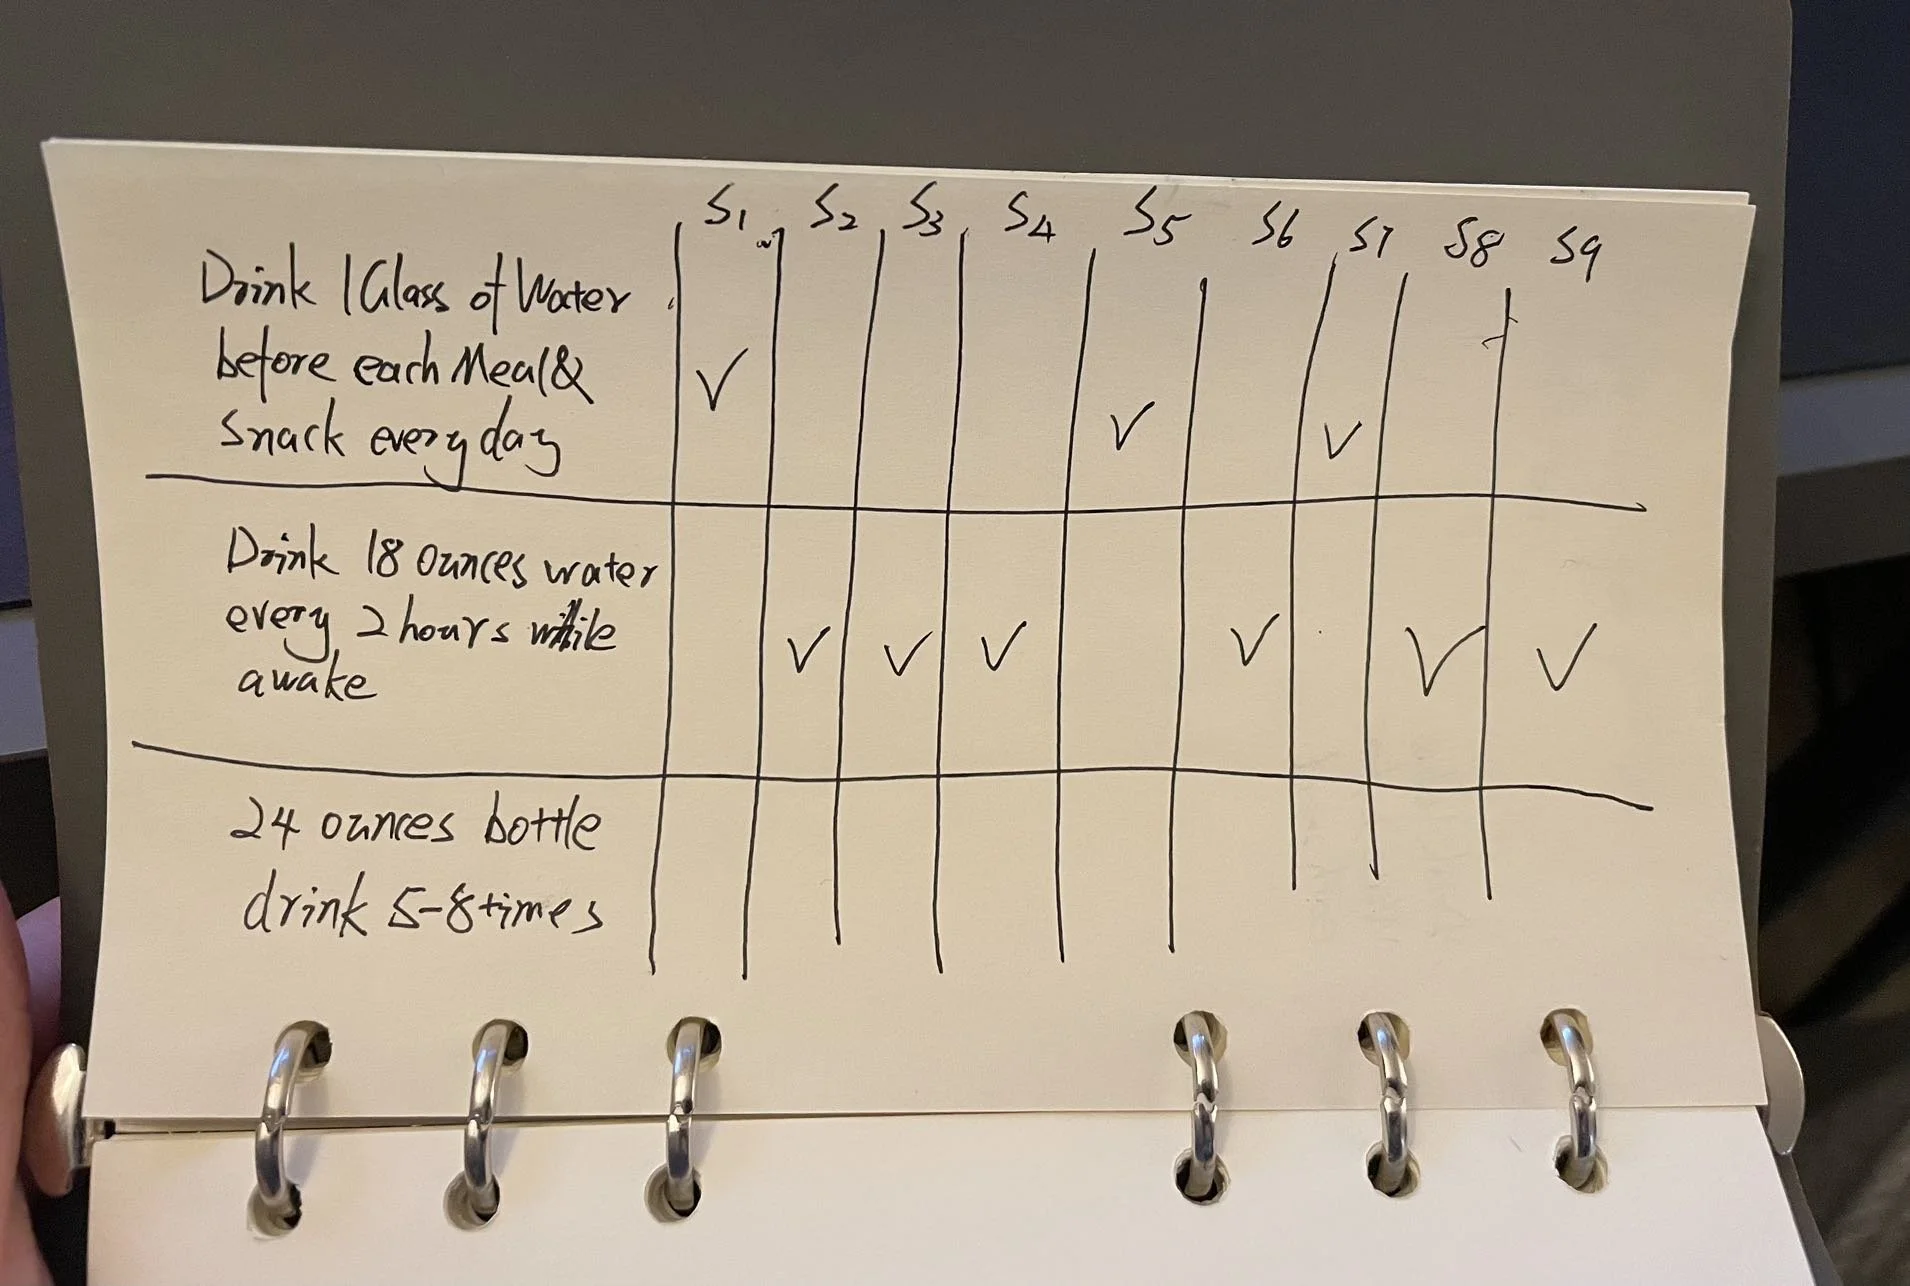 S1 S2 S3 S4 S5 S6 S7 S8 S9
Drink 1 Glass of Water
before each Meal &
Snack everyday
✓ ✓ ✓
Drink 18 ounces water
every 2 hours while
awake
✓ ✓ ✓ ✓ ✓ ✓
24 ounces bottle
drink 5-8 times